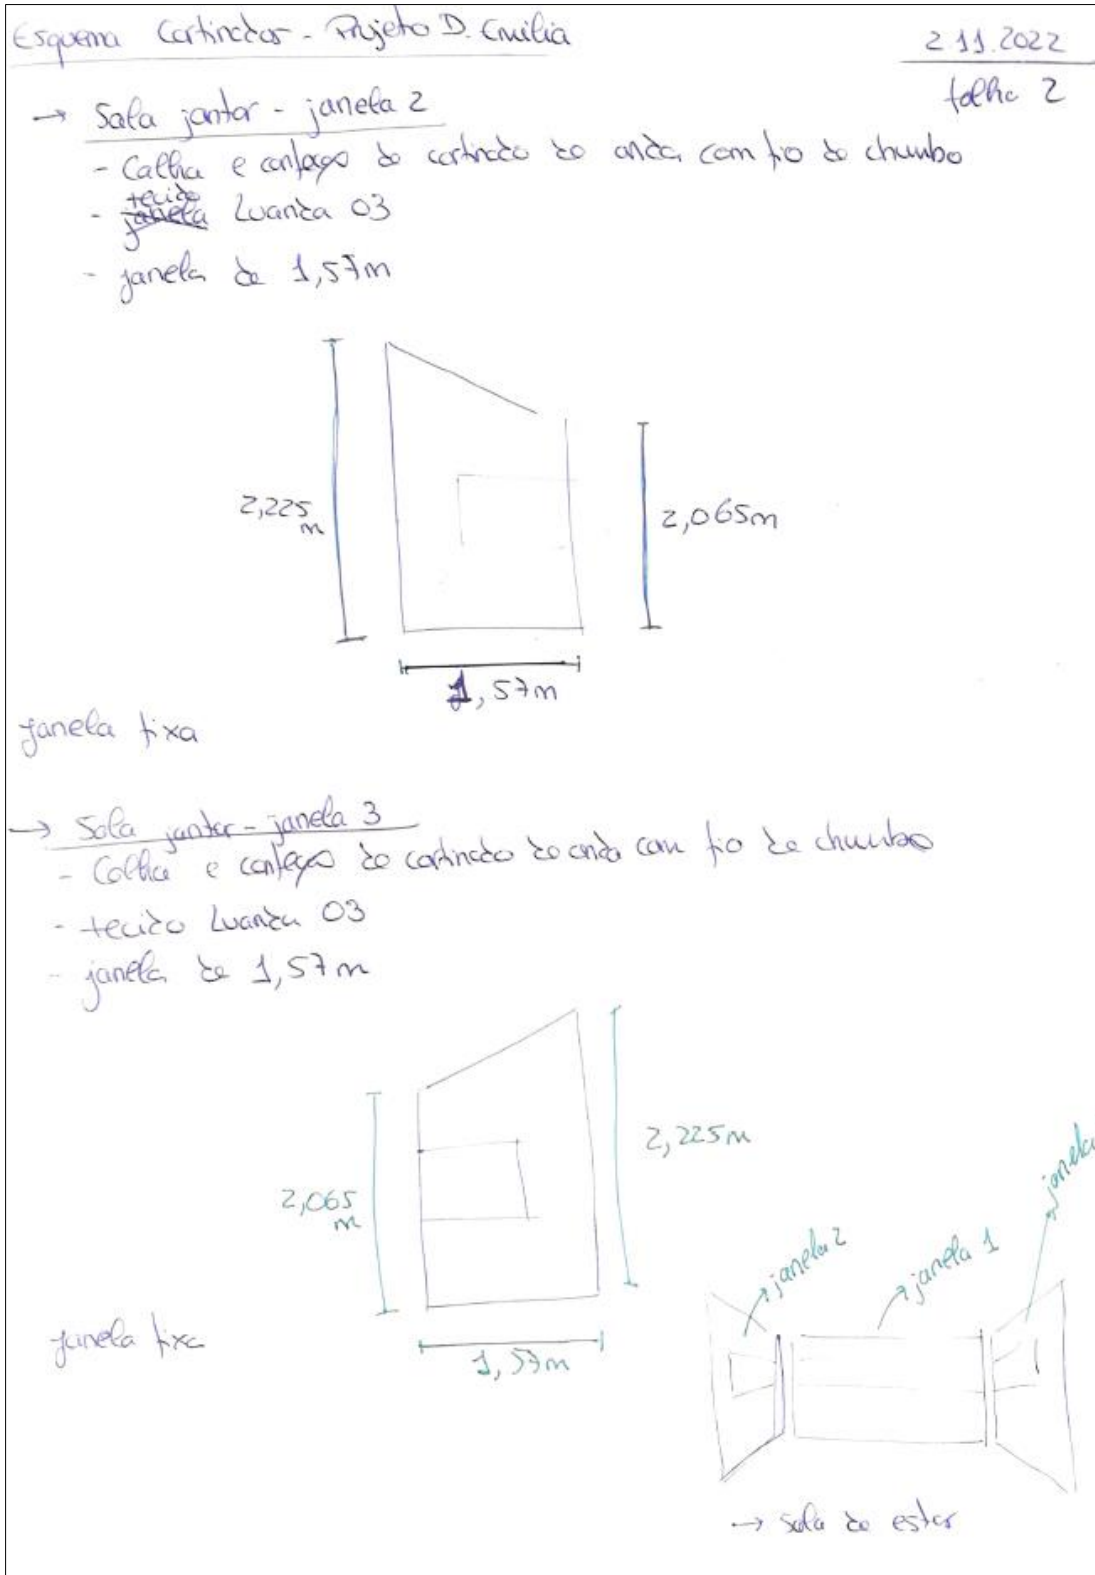 Esquema Cortinados - Projeto D. Emilia
2.11.2022
folha 2
→ Sala jantar - janela 2
- Calha e confeço de cortinado de onda com fio de chumbo
tecido
- janela Luanda 03
- janela de 1,57m
2,225
m
2,065m
1,57m
janela fixa
→ Sala jantar - janela 3
- Calha e confeço de cortinado de onda com fio de chumbo
- tecido Luanda 03
- janela de 1,57m
2,225m
2,065
m
janela
janela 2
janela 1
janela fixa
1,57m
→ sala de estar